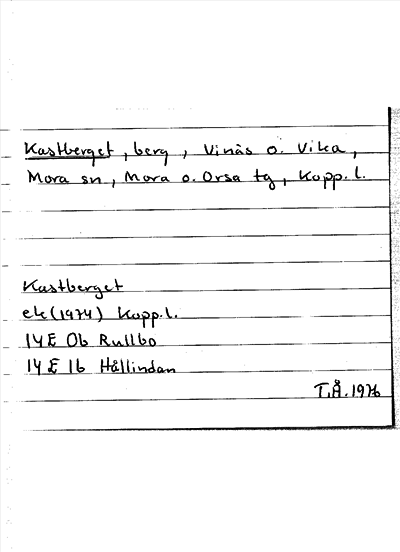 Kastberget, berg, Vinäs o. Vika,
Mora sn, Mora o. Orsa tg, Kopp.l.
Kastberget
ek(1974) Kopp.l.
14E 0b Rullbo
14E 1b Hållindan
T.Å.1976